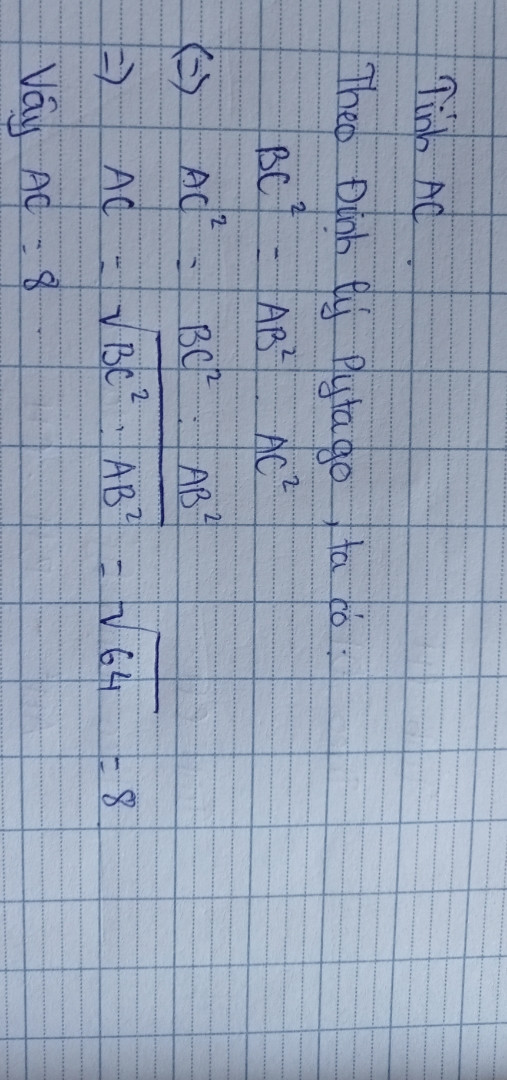 Tính AC.
Theo Định lý Pytago, ta có:
BC² = AB² . AC²
(=) AC² = BC² . AB²
=) AC = √BC² . AB² = √64 = 8
Vậy AC = 8.